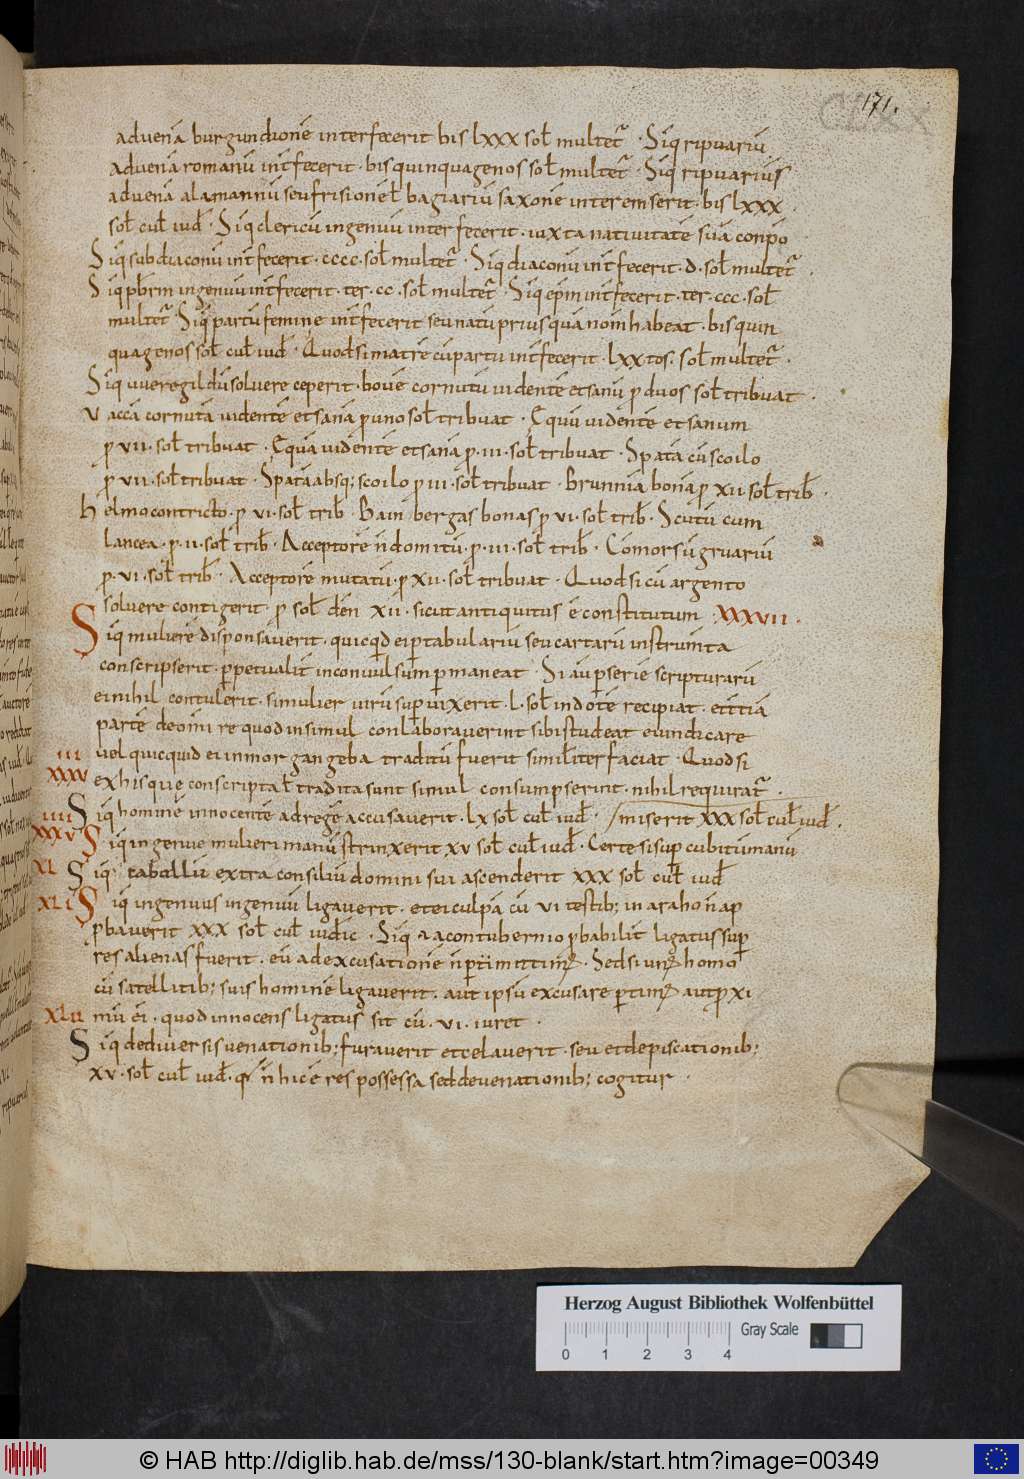 171.
aduenā burgundionē interfecerit bis lxxx sol multet᷑ · Siq ripuariū
aduenā romanū int̄fecerit · bis quinquagenos sol multet᷑ · Siq ripuarius
aduenā alamannū seu frisionē ł bagiariū saxonē interemserit · bis lxxx
sol cul iud · Siq clericū ingenuū interfecerit · iuxta natiuitatē suā conpō
Siq subdiaconū int̄fecerit · cccc · sol multet᷑ · Siq diaconū int̄fecerit · d · sol multet᷑ ·
Siq pbrm ingenuū int̄fecerit · ter · cc · sol multet᷑ · Siq epm int̄fecerit · ter · ccc · sol
multet᷑ · Siq partū feminę int̄fecerit seu natū priusquā nom̄ habeat · bis quin
quagenos sol cul iud · Quod si matrē cū partu int̄fecerit · lxx tos · sol multet᷑ ·
Siq uueregildū soluere ceperit · bouē cornutū uidentē et sanū ꝓ duos sol tribuat ·
Vaccā cornutā uidentē et sanā ꝓ uno sol tribuat · Equū uidentē et sanum
ꝓ vii · sol tribuat · Equā uidentē et sanā ꝓ · iii · sol tribuat · Spatā cū scoilo
ꝓ vii · sol tribuat · Spatā absq; scoilo ꝓ iii · sol tribuat · Brunnia bonā ꝓ xii · sol trib ·
helmo contricto · ꝓ vi · sol trib · Bain bergas bonas ꝓ vi · sol trib · Scutū cum
lancea · ꝓ · ii · sol trib · Acceptorē n̄ domitū · ꝓ · iii · sol trib · Comorsū gruariū
ꝓ · vi · sol trib · Acceptorē mutatū · ꝓ xii · sol tribuat · Quod si cū argento
soluere contigerit · ꝓ sol den xii · sicut antiquitus ē constitutum xxxvii ·
Siq mulierē disponsauerit · quicqd ei ꝑ tabulariū seu cartarū instrumta
conscripserit · ꝑpetualit̄ inconuulsum ꝑmaneat · Si aū ꝑ seriē scripturarū
ei nihil contulerit · si mulier uirū suꝑuixerit · l · sol in dotē recipiat · et tٖtiā
partē de om̄i re quod insimul conlaborauerint sibi studeat euindicare
uel quicquid ei in morgangeba traditū fuerit similiter faciat · Quod si
iii
xxxv ex his quę conscripta ł tradita sunt simul consumpserint · nihil requirat᷑ ·
iiii
Siq hominē innocentē ad regē accusauerit · lx sol cul iud · / miserit xxx sol cul iud ·
xxxv Siq ingenuę mulieri manū strinxerit xv sol cul iud · Certe si suꝑ cubitū manū
xl Siq caballū extra consiliū domini sui ascenderit xxx sol cul iud
xli Siq ingenuus ingenuū ligauerit · et ei culpā cū vi testib; in araho n̄ ap
ꝓbauerit xxx sol cul iudic · Siq a contubernio ꝓbabilit̄ ligatus suꝑ
res alienas fuerit · eū ad excusationē n̄ ꝑmittim᷒ · Sed si un᷒ homo
cū satellitib; suis hominē ligauerit · aut ipsū excusare ꝑmittim᷒ aut ꝓxi
xlii mū ei · quod innocens ligatus sit cū · vi · iuret ·
Siq de diuersis uenationib; furauerit et celauerit · seu et de piscationib;
xv · sol cul iud · q n̄ hic ē res possessa sed de uenationib; cogitur ·
Herzog August Bibliothek Wolfenbüttel
Gray Scale
0 1 2 3 4
© HAB http://diglib.hab.de/mss/130-blank/start.htm?image=00349